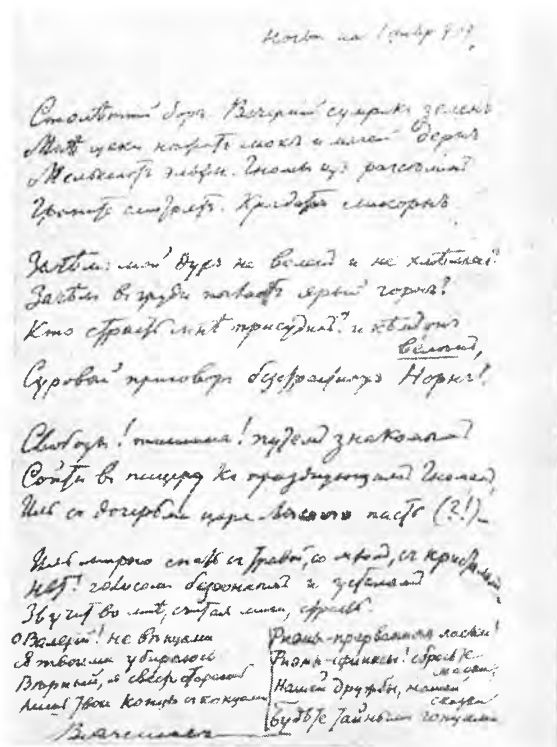 Ночь на 1 февр 909.
Столѣтній боръ. Вечерній сумракъ зеленъ
Мнѣ щеки мохъ и мягкій дернъ
Мелькаютъ эльфы. Гномы изъ разсѣлинъ
Гранита смотрятъ. Крадется
Зачѣмъ мой духъ не воленъ и не
Зачѣмъ въ груди ярый горнъ?
Кто страсть мнѣ присудилъ? и кѣмъ онъ
веленъ,
Суровый приговоръ безстрастныхъ Норнъ?
Свободы! тишины! путемъ знакомымъ
Сойти въ пещеру къ празднующимъ Гномамъ,
Иль съ дочерьми царя Лѣсного пасть (?!) –
Иль мирно спать съ травой, со мхомъ, съ кристаломъ
Нет! голосомъ безсоннымъ и усталымъ
Звучитъ во мнѣ, считая миги, страсть.
О Валерій! не вѣнцами
Я твоими убираюсь
Вѣрный,
Лишь твои концы съ концами
Вячеславъ
Риѳмы – прерванныя ласки!
Риѳмы-сфинксы! сбросьте
маски,
Нашей дружбы, нашей
сказки
Будьте тайными гонцами